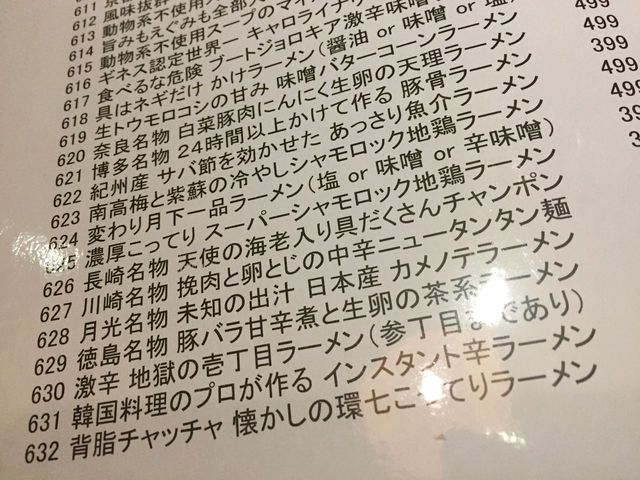 611
612 風味抜群
613 動物系不使用
614 旨みもえぐみも全部
615 動物系不使用スープのマイ
616 ギネス認定世界一 キャロライナ
617 食べるな危険 ブートジョロキア激辛味噌
618 具はネギだけ かけラーメン(醤油 or 味噌 or 塩)
619 生トウモロコシの甘み 味噌バターコーンラーメン
620 奈良名物 白菜豚肉にんにく生卵の天理ラーメン
621 博多名物 24時間以上かけて作る 豚骨ラーメン
622 紀州産 サバ節を効かせた あっさり魚介ラーメン
623 南高梅と紫蘇の冷やしシャモロック地鶏ラーメン
624 変わり月下一品ラーメン(塩 or 味噌 or 辛味噌)
625 濃厚こってり スーパーシャモロック地鶏ラーメン
626 長崎名物 天使の海老入り具だくさんチャンポン
627 川崎名物 挽肉と卵とじの中辛ニュータンタン麺
628 月光名物 未知の出汁 日本産 カメノテラーメン
629 徳島名物 豚バラ甘辛煮と生卵の茶系ラーメン
630 激辛 地獄の壱丁目ラーメン(参丁目まであり)
631 韓国料理のプロが作る インスタント辛ラーメン
632 背脂チャッチャ 懐かしの環七こってりラーメン
499
499
399
499
499